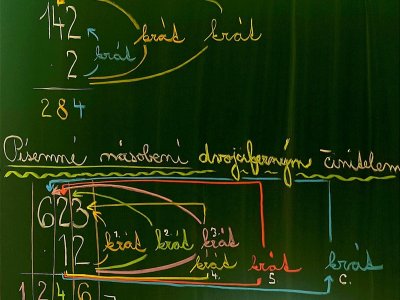 142 krát krát
krát
· 2
284
Písemné násobení dvojciferným činitelem
623
1. 2. 3.
· 12 krát krát krát krát krát
4. 5. 6.
1246